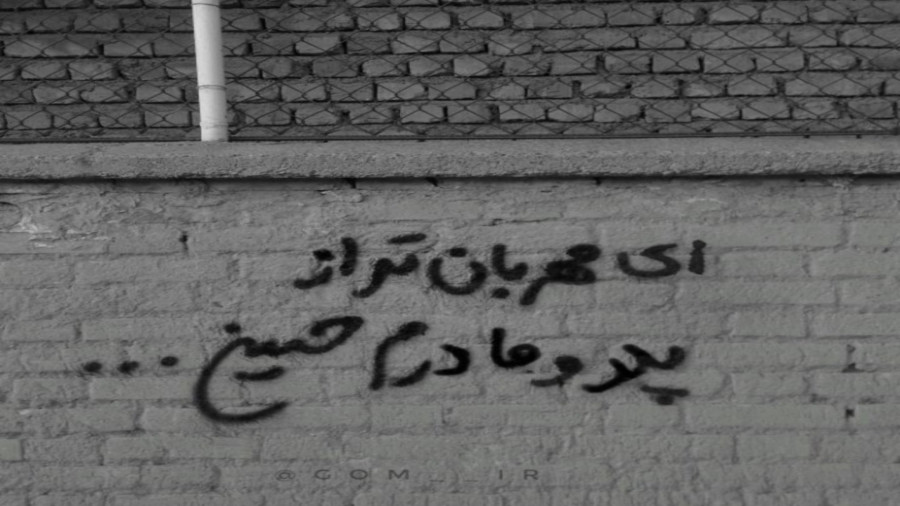 ای مهربان تر از
پدر و مادرم حسین ...
@GOM__IR